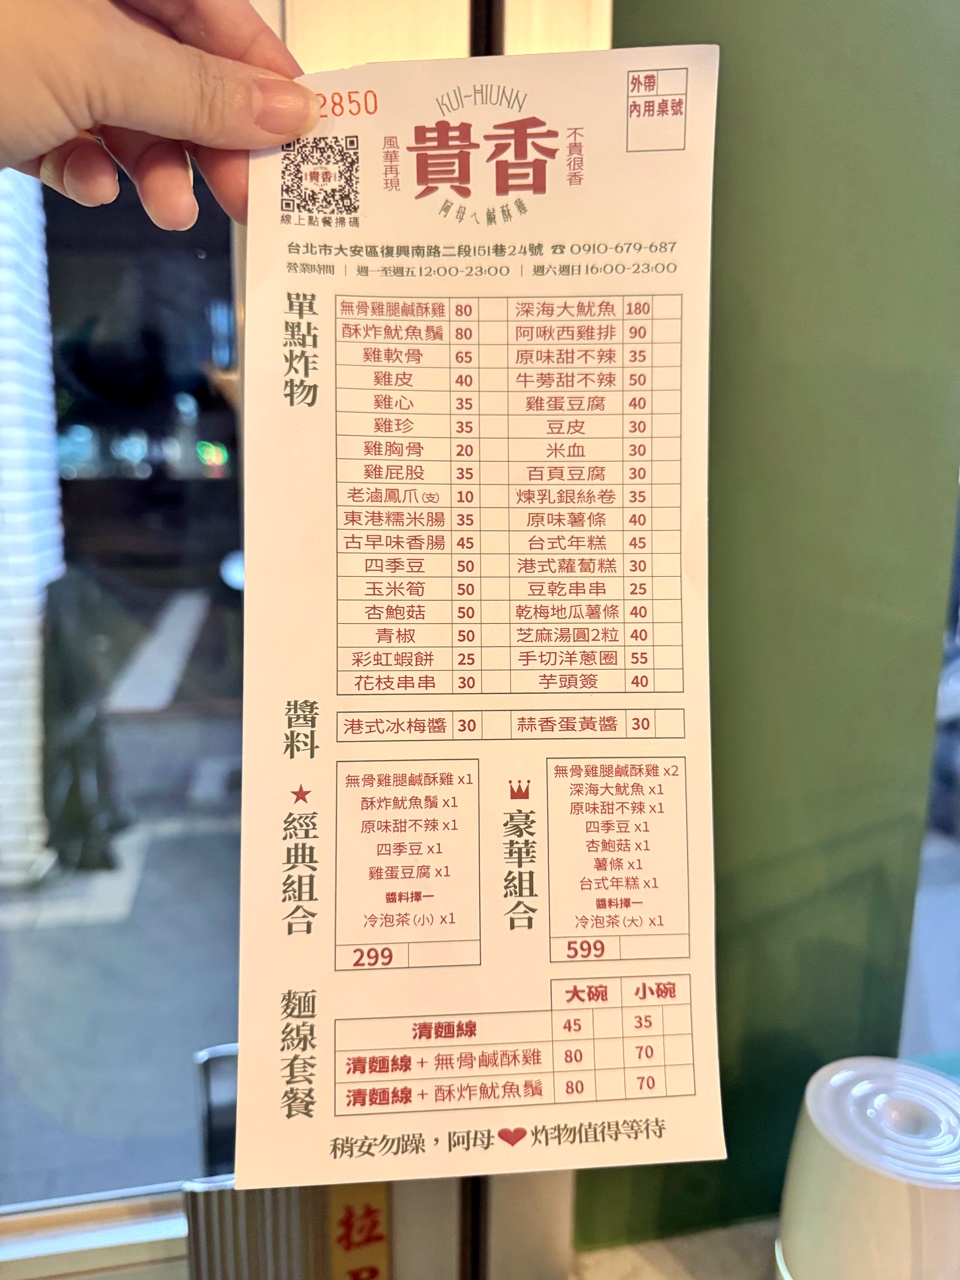 2850
KUI-HIUNN
貴香
風華再現
不貴很香
阿母ㄟ鹹酥雞
線上點餐掃碼
外帶
內用桌號
台北市大安區復興南路二段151巷24號 ☎ 0910-679-687
營業時間 | 週一至週五12:00-23:00 | 週六週日16:00-23:00
單點炸物
無骨雞腿鹹酥雞 80 深海大魷魚 180
酥炸魷魚鬚 80 阿啾西雞排 90
雞軟骨 65 原味甜不辣 35
雞皮 40 牛蒡甜不辣 50
雞心 35 雞蛋豆腐 40
雞珍 35 豆皮 30
雞胸骨 20 米血 30
雞屁股 35 百頁豆腐 30
老滷鳳爪(支) 10 煉乳銀絲卷 35
東港糯米腸 35 原味薯條 40
古早味香腸 45 台式年糕 45
四季豆 50 港式蘿蔔糕 30
玉米筍 50 豆乾串串 25
杏鮑菇 50 乾梅地瓜薯條 40
青椒 50 芝麻湯圓2粒 40
彩虹蝦餅 25 手切洋蔥圈 55
花枝串串 30 芋頭簽 40
醬料
港式冰梅醬 30 蒜香蛋黃醬 30
★經典組合
無骨雞腿鹹酥雞 x1
酥炸魷魚鬚 x1
原味甜不辣 x1
四季豆 x1
雞蛋豆腐 x1
醬料擇一
冷泡茶(小) x1
299
豪華組合
無骨雞腿鹹酥雞 x2
深海大魷魚 x1
原味甜不辣 x1
四季豆 x1
杏鮑菇 x1
薯條 x1
台式年糕 x1
醬料擇一
冷泡茶(大) x1
599
麵線套餐
大碗 小碗
清麵線 45 35
清麵線 + 無骨鹹酥雞 80 70
清麵線 + 酥炸魷魚鬚 80 70
稍安勿躁，阿母❤炸物值得等待
拉